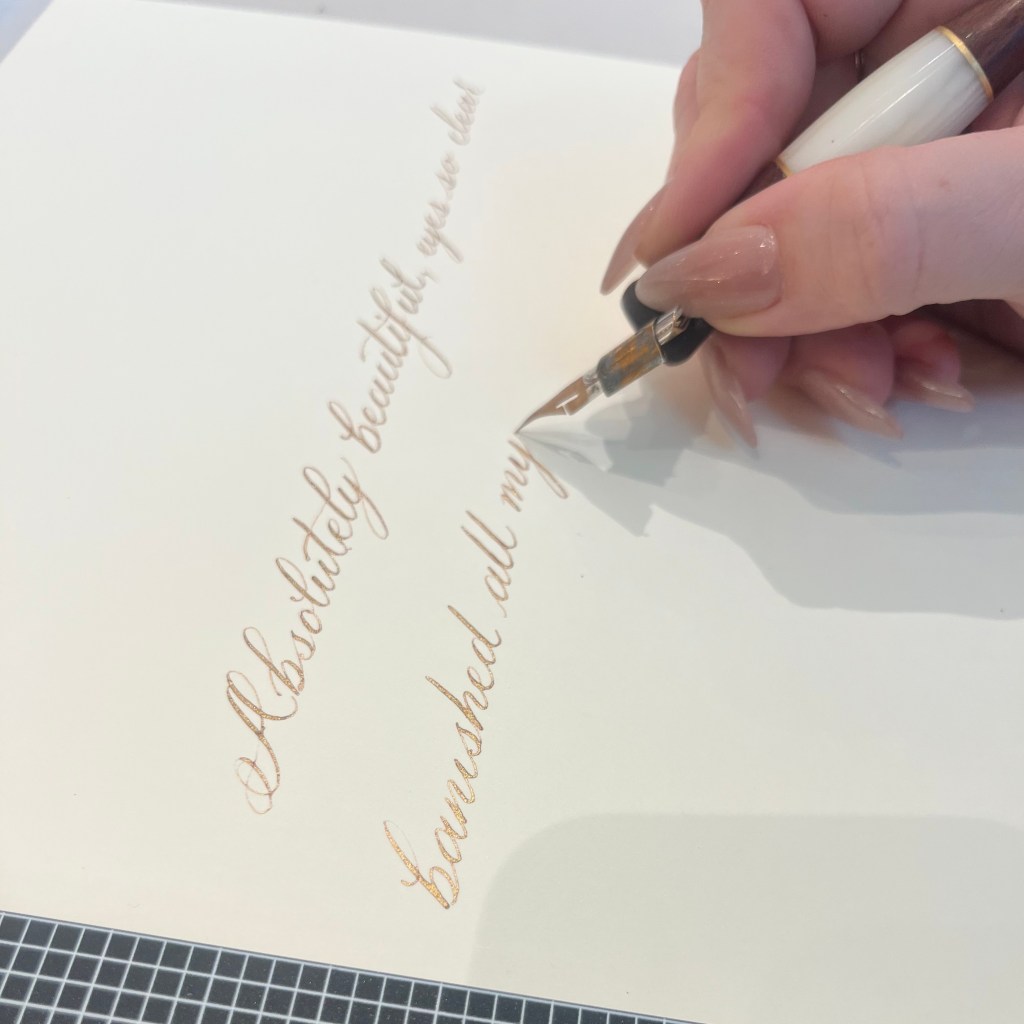 Absolutely beautiful, eyes so clear
banished all my